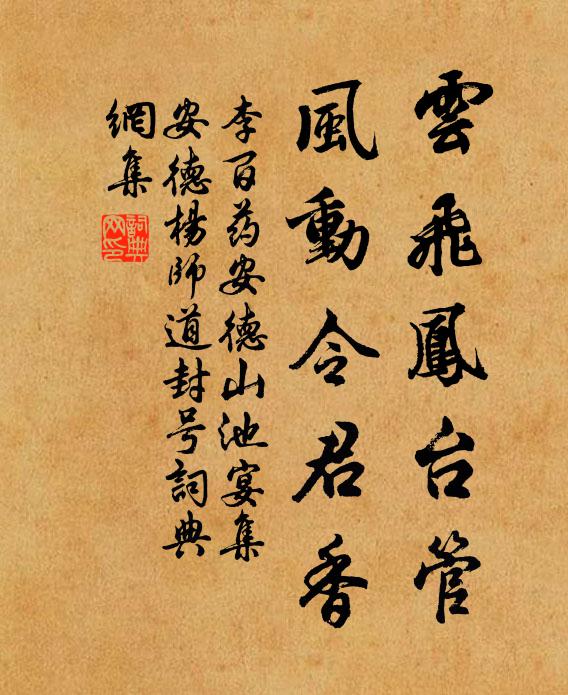 雲飛鳳台管
風動令君香
李百药安德山池宴集
安德楊師道封号詞典
網集
詞典网印